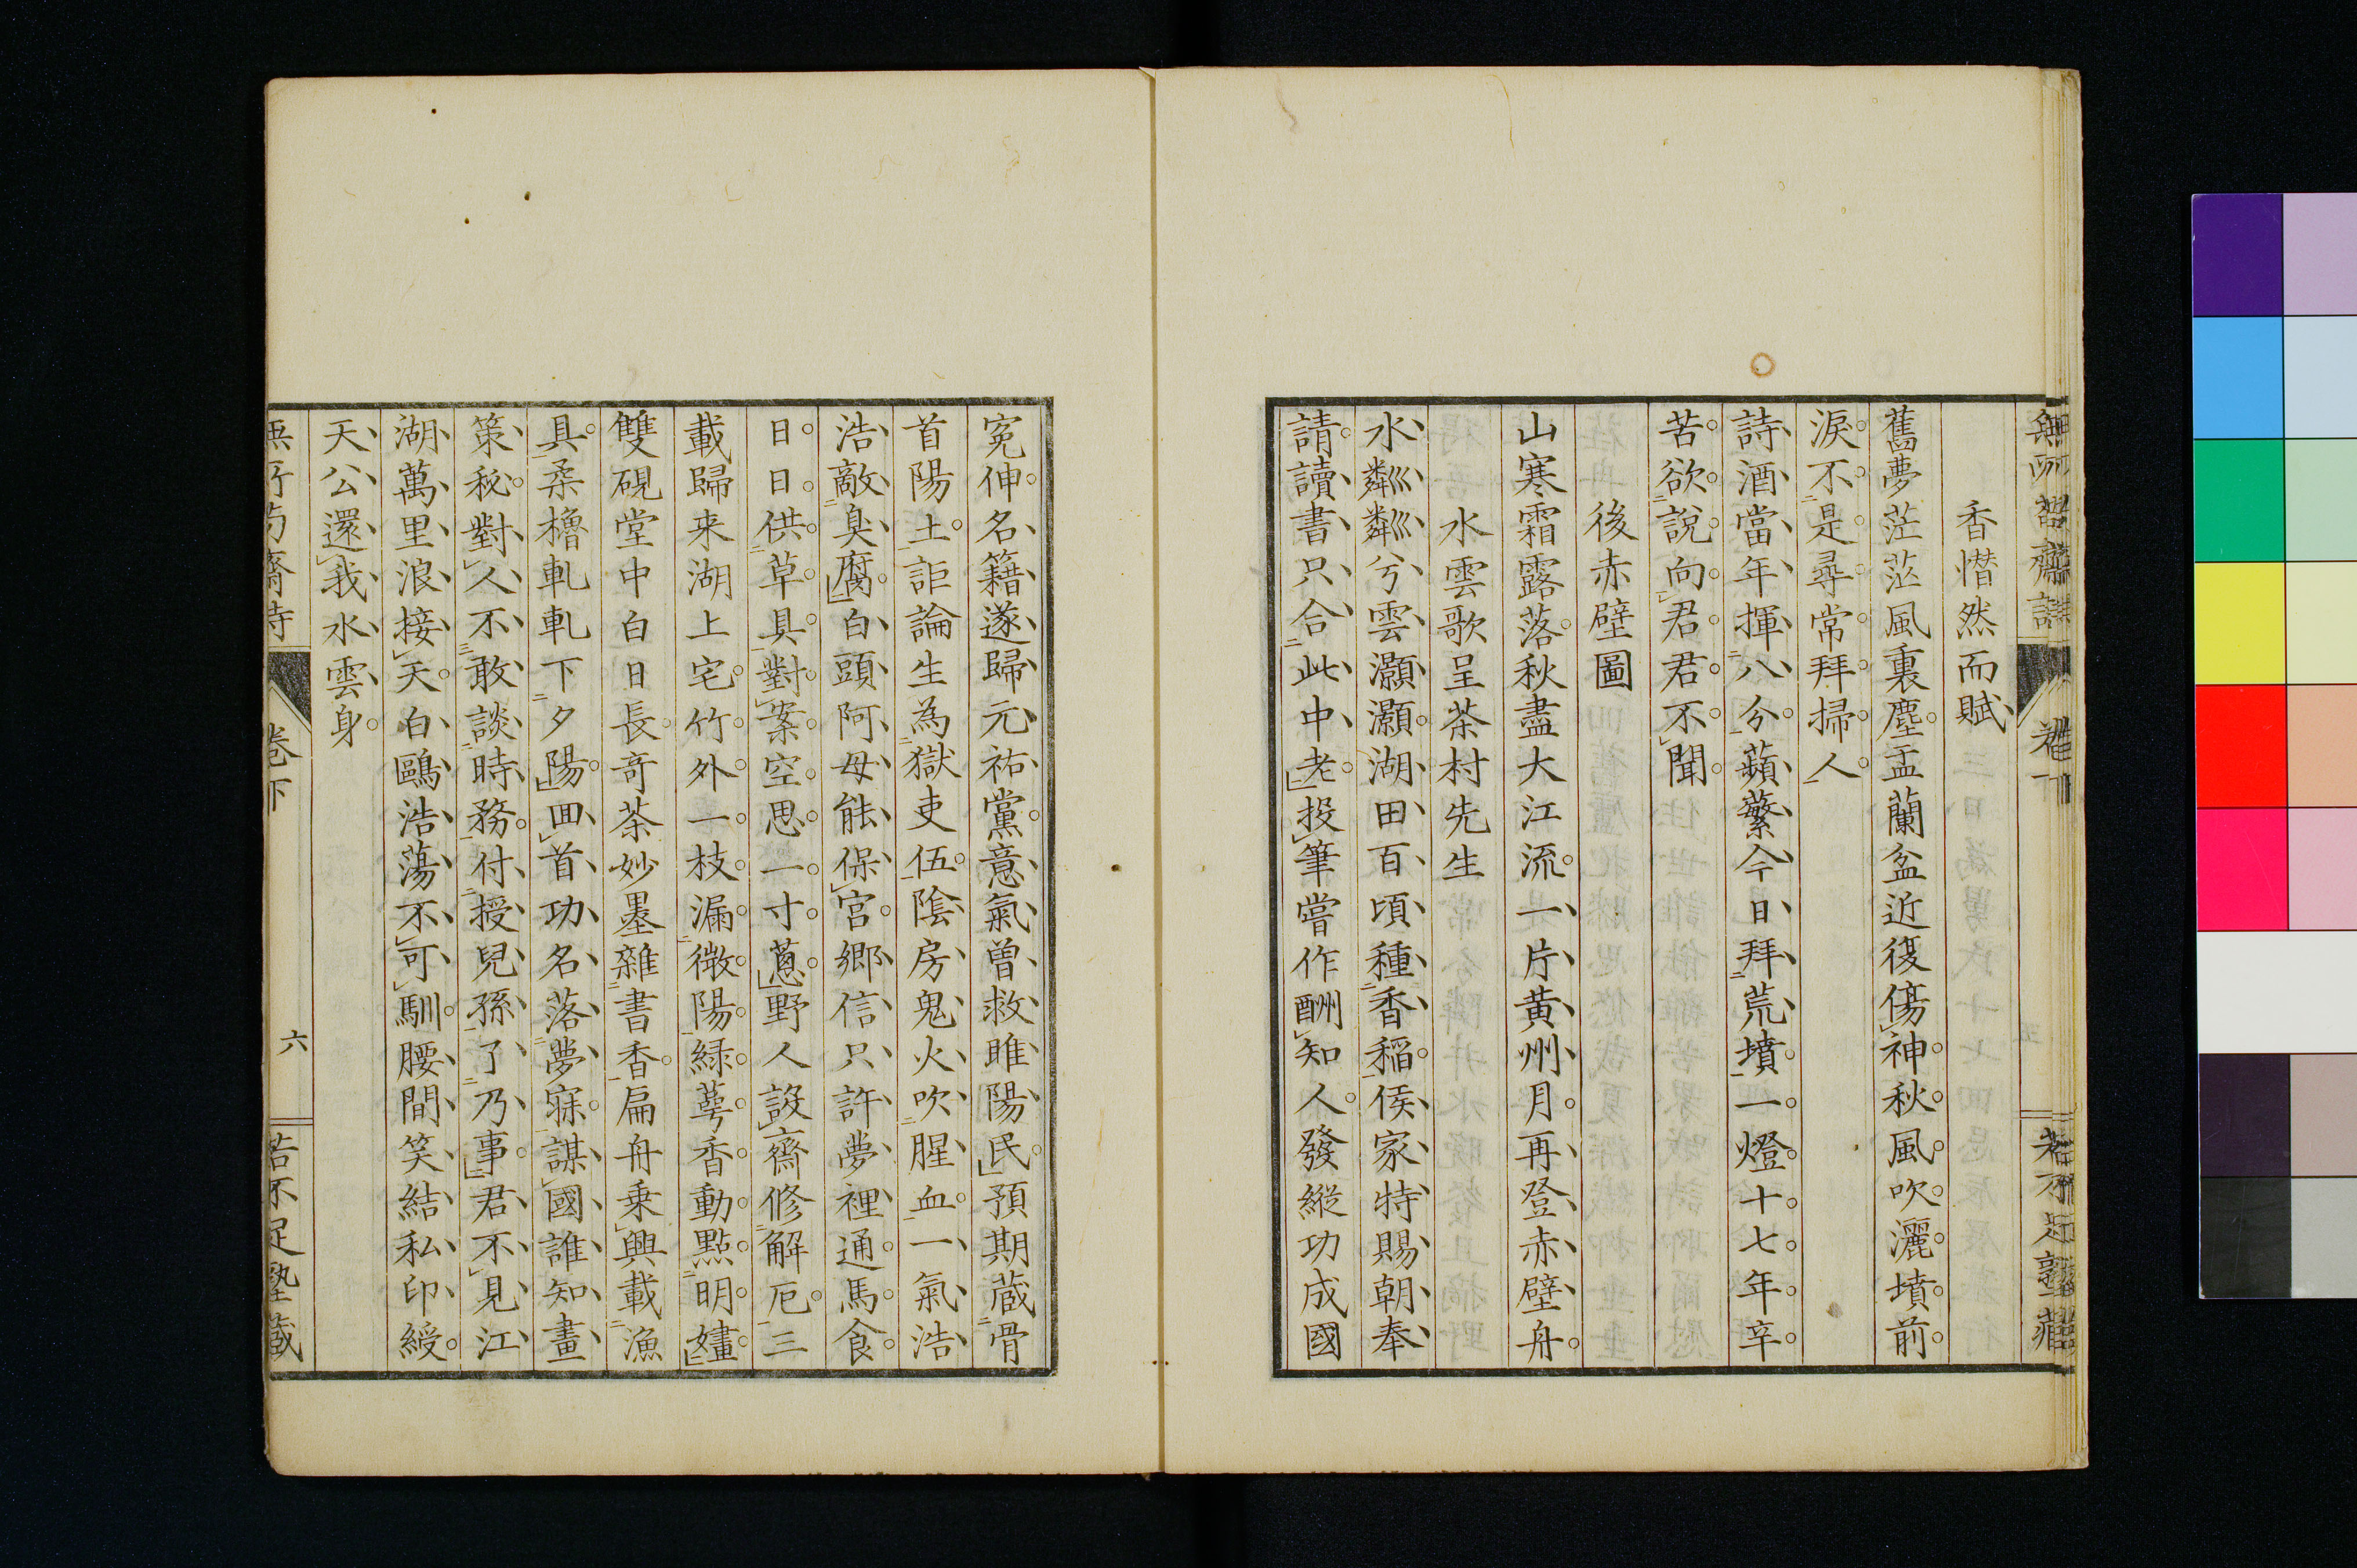 香憯然而賦
舊夢茫茫風裏塵盂蘭盆近復傷神秋風吹灑墳前
淚不是尋常拜掃人
詩酒當年揮八分蘋蘩今日拜荒墳一燈十七年辛
苦欲說向君君不聞
後赤壁圖
山寒霜露落秋盡大江流一片黄州月再登赤壁舟
水雲歌呈茶村先生
水粼粼兮雲灝灝湖田百頃種香稲侯家特賜朝奉
請讀書只合此中老投筆嘗作酬知人發縱功成國
冤伸名籍遂歸元祐黨意氣曽救睢陽民預期蔵骨
首陽土詎論生為獄吏伍陰房鬼火吹腥血一氣浩
浩敵臭腐白頭阿母能保宮郷信只許夢裡通馬食
日日供草具對案空思一寸蔥野人設齋修解厄三
載歸来湖上宅竹外一枝漏微陽緑萼香動點明嫿
雙硯堂中白日長奇荼妙墨雜書香扁舟乗興載漁
具柔櫓軋軋下夕陽囬首功名落夢寐謀國誰知畫
策秘對人不敢談時務付授兒孫了乃事君不見江
湖萬里浪接天白鷗浩蕩不可馴腰間笑結私印綬
天公還我水雲身
卷下
六